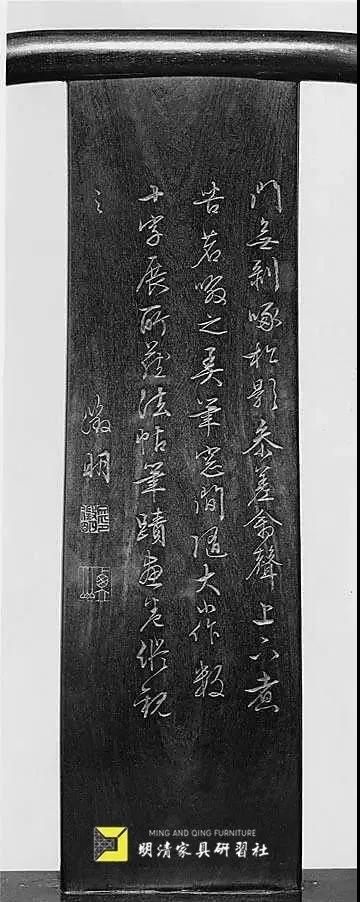 門無剝啄松影參差禽聲上下煮
苦茗啜之弄筆窓間隨大小作數
十字展所藏法帖筆蹟畫卷縱觀
之
徵明
MING AND QING FURNITURE
明清家具研習社